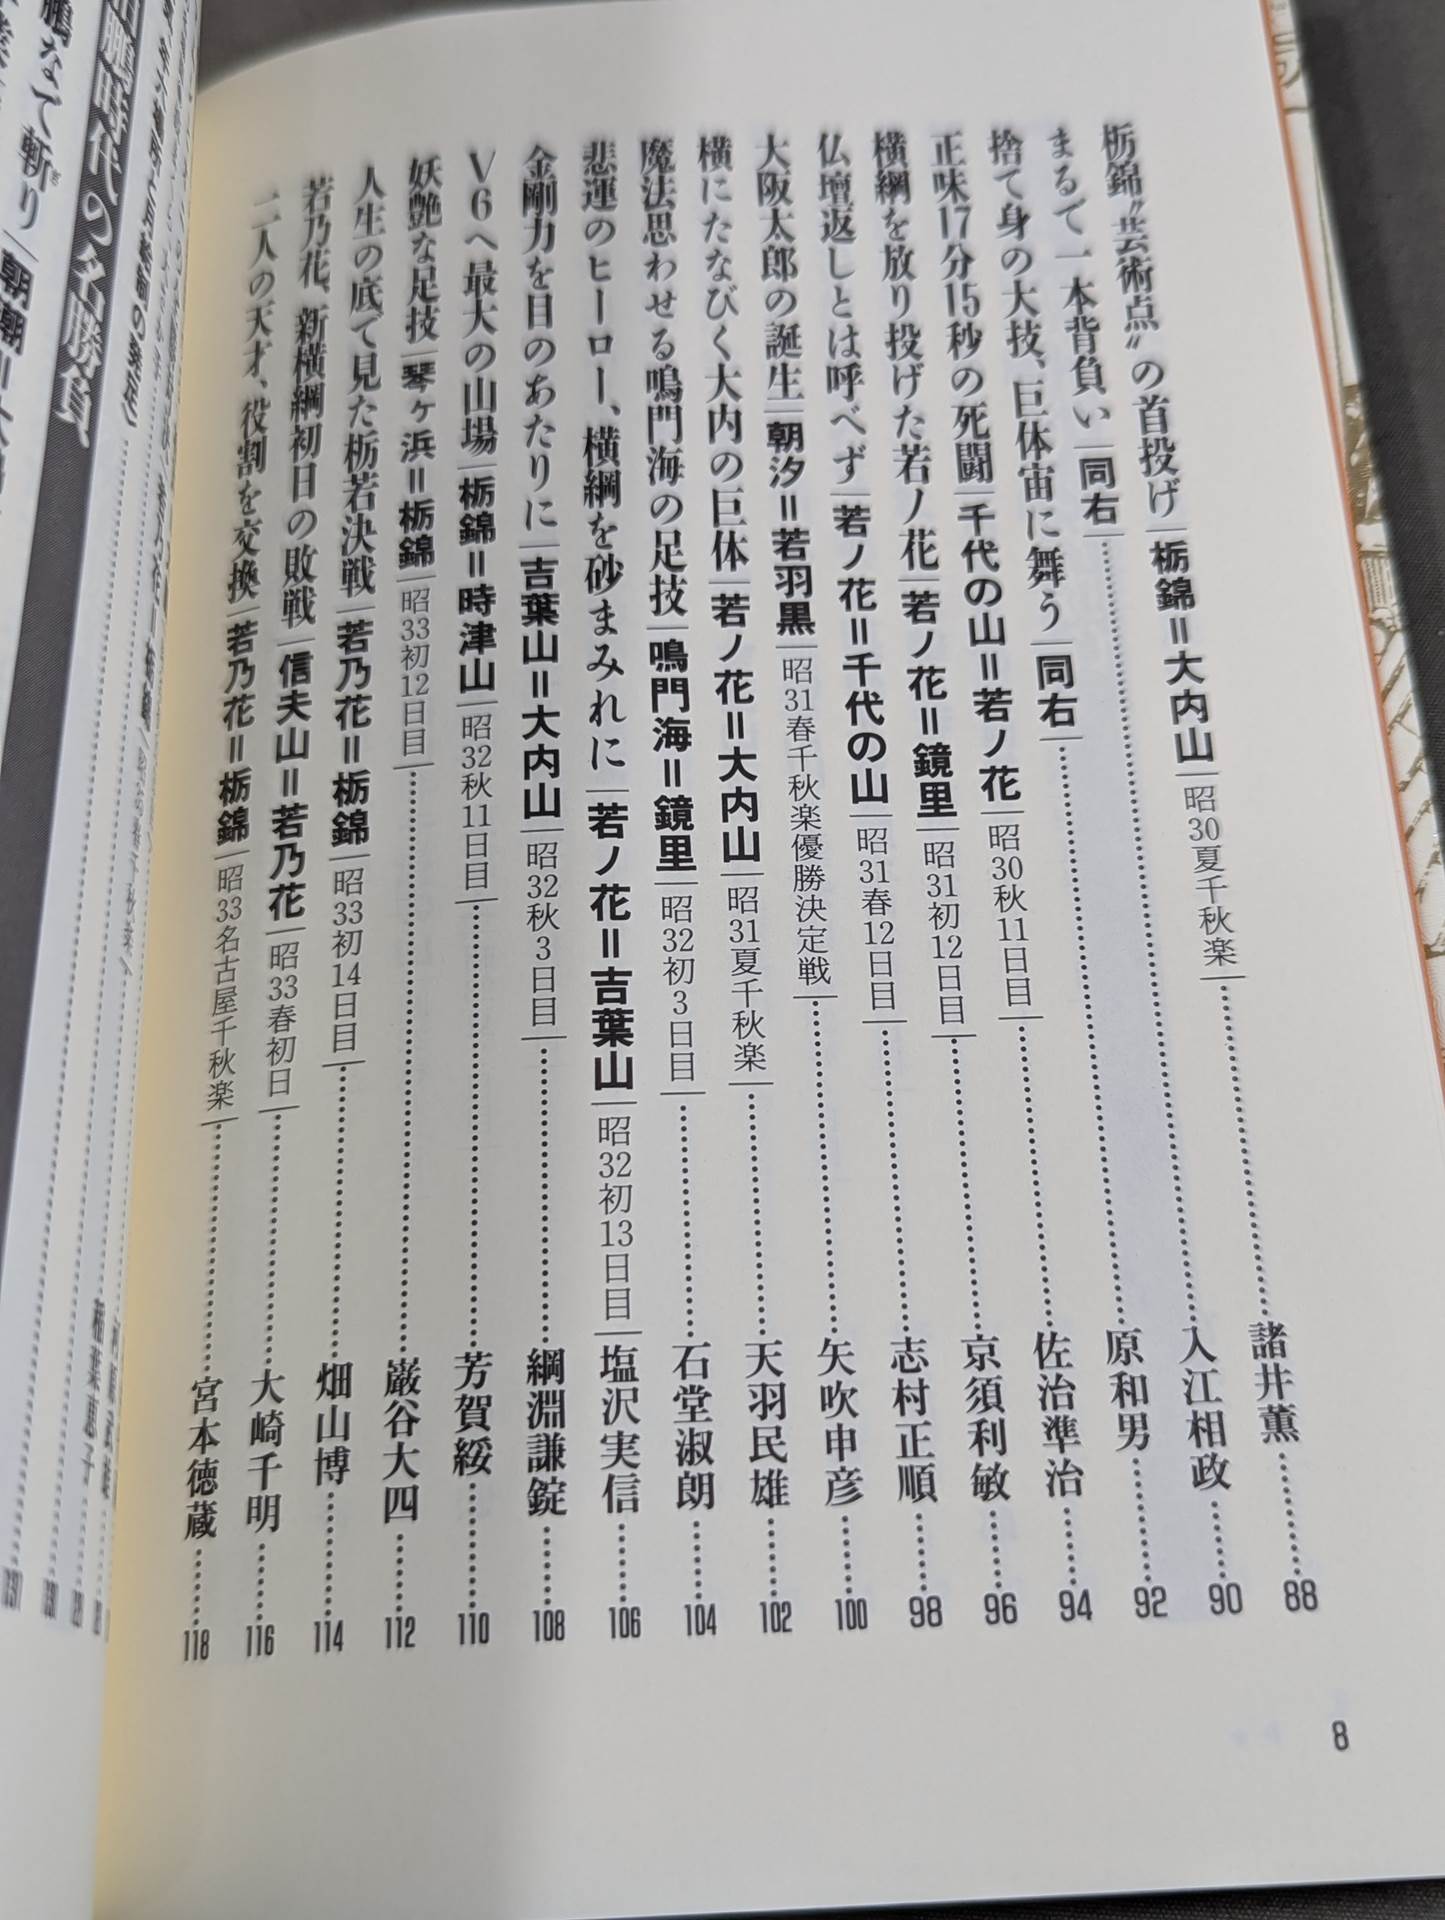 栃錦〝芸術点〟の首投げ｜栃錦＝大内山｜昭30夏千秋楽｜……諸井薫……88
まるで一本背負い｜同右｜……入江相政……90
捨て身の大技、巨体宙に舞う｜同右｜……原和男……92
正味17分15秒の死闘｜千代の山＝若ノ花｜昭30秋11日目｜……佐治準治……94
横綱を放り投げた若ノ花｜若ノ花＝鏡里｜昭31初12日目｜……京須利敏……96
仏壇返しとは呼べず｜若ノ花＝千代の山｜昭31春12日目｜……志村正順……98
大阪太郎の誕生｜朝汐＝若羽黒｜昭31春千秋楽優勝決定戦｜……矢吹申彦……100
横にたなびく大内の巨体｜若ノ花＝大内山｜昭31夏千秋楽｜……天羽民雄……102
魔法思わせる鳴門海の足技｜鳴門海＝鏡里｜昭32初3日目｜……石堂淑朗……104
悲運のヒーロー、横綱を砂まみれに｜若ノ花＝吉葉山｜昭32初13日目｜塩沢実信……106
金剛力を目のあたりに｜吉葉山＝大内山｜昭32秋3日目｜……綱淵謙錠……108
V6へ最大の山場｜栃錦＝時津山｜昭32秋11日目｜……芳賀綏……110
妖艶な足技｜琴ヶ浜＝栃錦｜昭33初12日目｜……巌谷大四……112
人生の底で見た栃若決戦｜若乃花＝栃錦｜昭33初14日目｜……畑山博……114
若乃花、新横綱初日の敗戦｜信夫山＝若乃花｜昭33春初日｜……大崎千明……116
二人の天才、役割を交換｜若乃花＝栃錦｜昭33名古屋千秋楽｜……宮本徳蔵……118
8
鵬時代の名勝負
鵬なで斬り